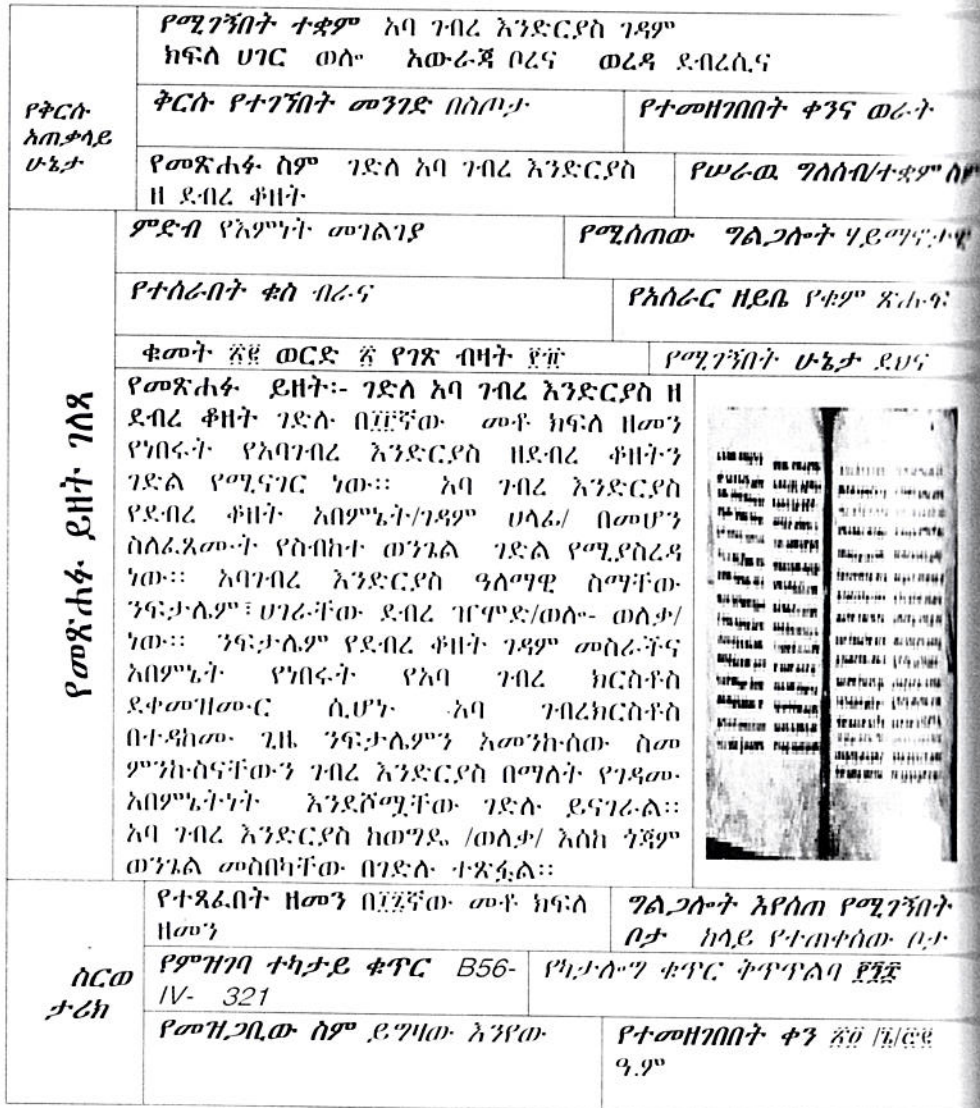 የሚገኝበት ተቋም አባ ገብረ እንድርያስ ገዳም
ክፍለ ሀገር ወሎ አውራጃ ቦረና ወረዳ ደብረሲና
የቅርሱ
አጠቃላይ
ሁኔታ
ቅርሱ የተገኘበት መንገድ በስጦታ
የተመዘገበበት ቀንና ወራት
የመጽሐፉ ስም ገድለ አባ ገብረ እንድርያስ
ዘ ደብረ ቆዘት
የሠራዉ ግለሰብ/ተቋም ስም
ምድብ የእምነት መገልገያ
የሚሰጠው ግልጋሎት ሃይማኖታዊ
የተሰራበት ቁስ ብራና
የአሰራር ዘይቤ የቁም ጽሑፍ
ቁመት ወርድ የገጽ ብዛት
የሚገኝበት ሁኔታ ደህና
የመጽሐፉ ይዘት ገለጻ
የመጽሐፉ ይዘት፡- ገድለ አባ ገብረ እንድርያስ ዘ
ደብረ ቆዘት ገድሉ መቶ ክፍለ ዘመን
የነበሩት የአባገብረ እንድርያስ ዘደብረ ቆዘትን
ገድል የሚናገር ነው። አባ ገብረ እንድርያስ
የደብረ ቆዘት አበምኔት/ገዳም ሀላፊ/ በመሆን
ስለፈጸሙት የስብከተ ወንጌል ገድል የሚያስረዳ
ነው። አባገብረ እንድርያስ ዓለማዊ ስማቸው
ንፍታሌም፣ ሀገራቸው ደብረ ዝሞድ/ወሎ- ወለቃ/
ነው። ንፍታሌም የደብረ ቆዘት ገዳም መስራችና
አበምኔት የነበሩት የአባ ገብረ ክርስቶስ
ደቀመዝሙር ሲሆኑ አባ ገብረክርስቶስ
በተዳከሙ ጊዜ ንፍታሌምን አመንኩሰው ስመ
ምንኩስናቸውን ገብረ እንድርያስ በማለት የገዳሙ
አበምኔትነት እንደሾሟቸው ገድሉ ይናገራል።
አባ ገብረ እንድርያስ ከወግዴ /ወለቃ/ እስከ ጎጃም
ወንጌል መስበካቸው በገድሉ ተጽፏል።
ስርወ
ታሪክ
የተጻፈበት ዘመን መቶ ክፍለ
ዘመን
ግልጋሎት እየሰጠ የሚገኝበት
ቦታ ከላይ የተጠቀሰው ቦታ
የምዝገባ ተከታታይ ቁጥር B56-
IV- 321
የካታሎግ ቁጥር ቅጥጥልባ
የመዝጋቢው ስም ይግዛው እንየው
የተመዘገበበት ቀን
ዓ.ም